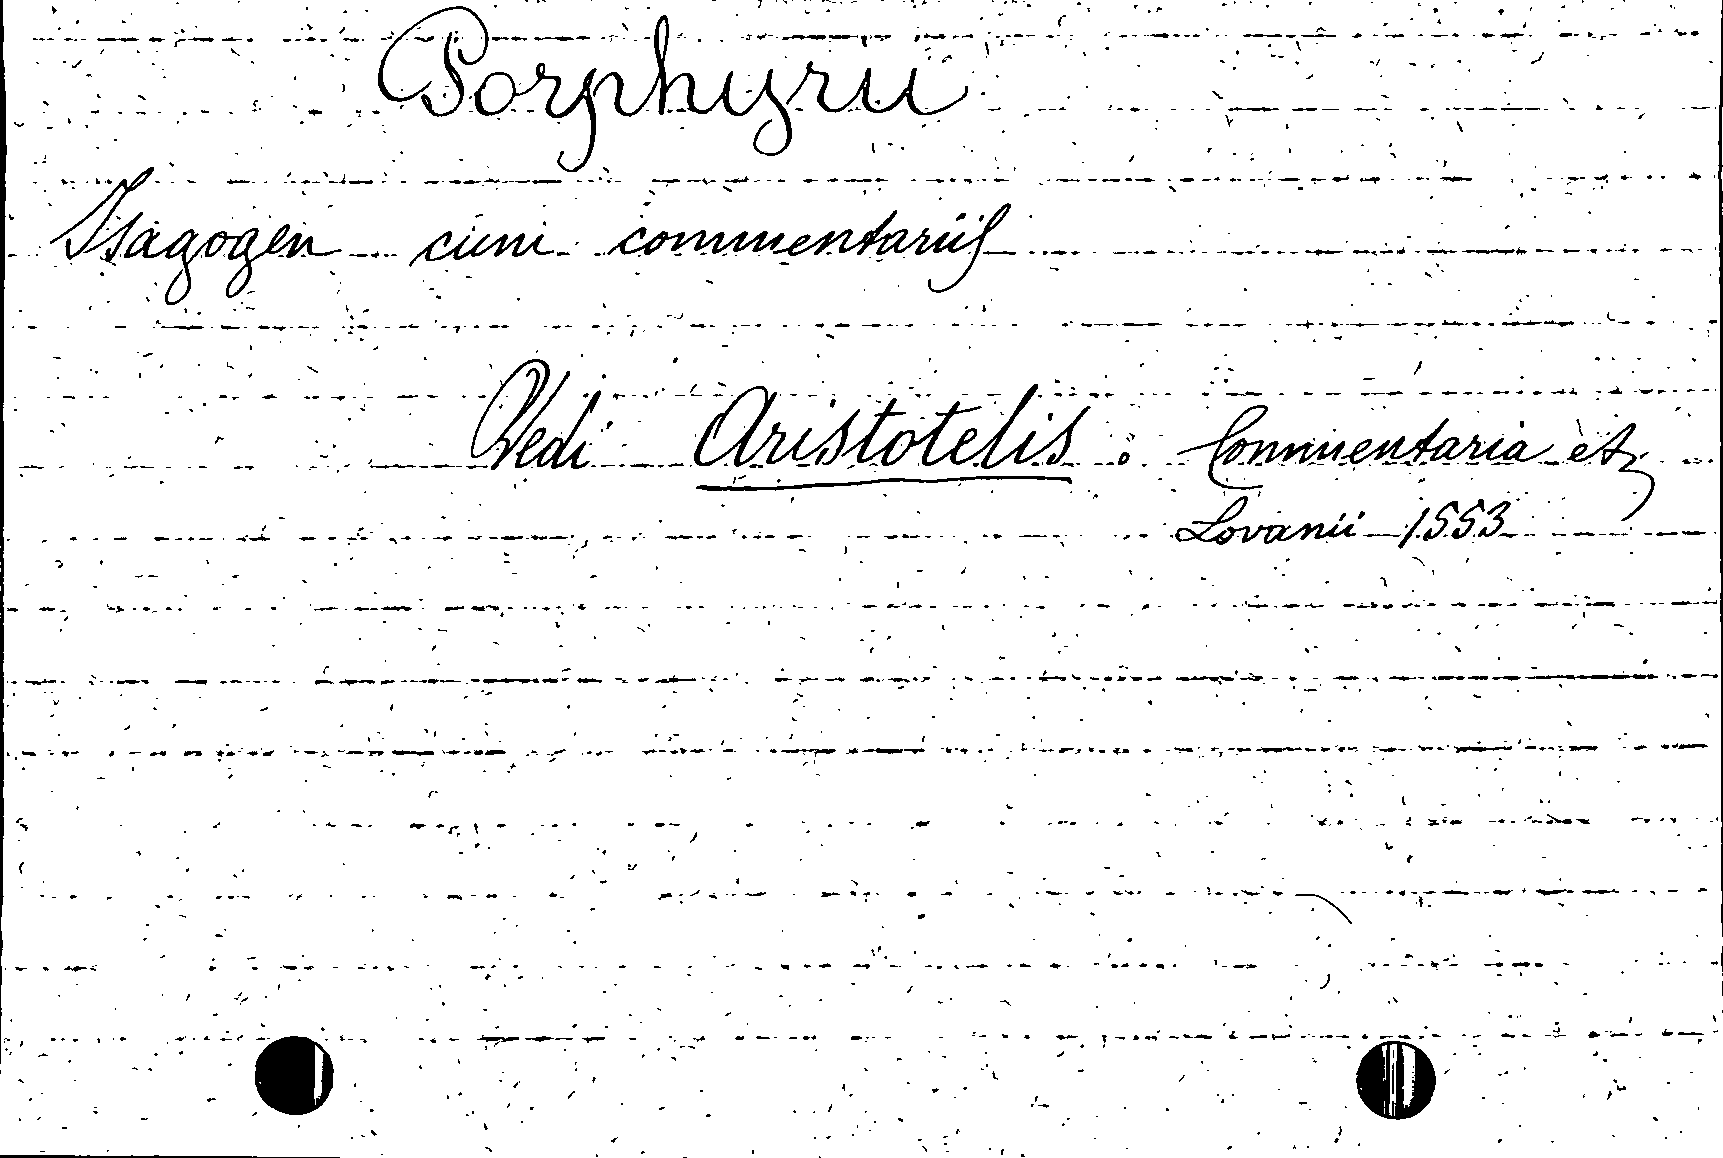 Porphyrii
Isagogen cum commentariis
Vedi Aristotelis: Commentaria etc
Lovanii 1553